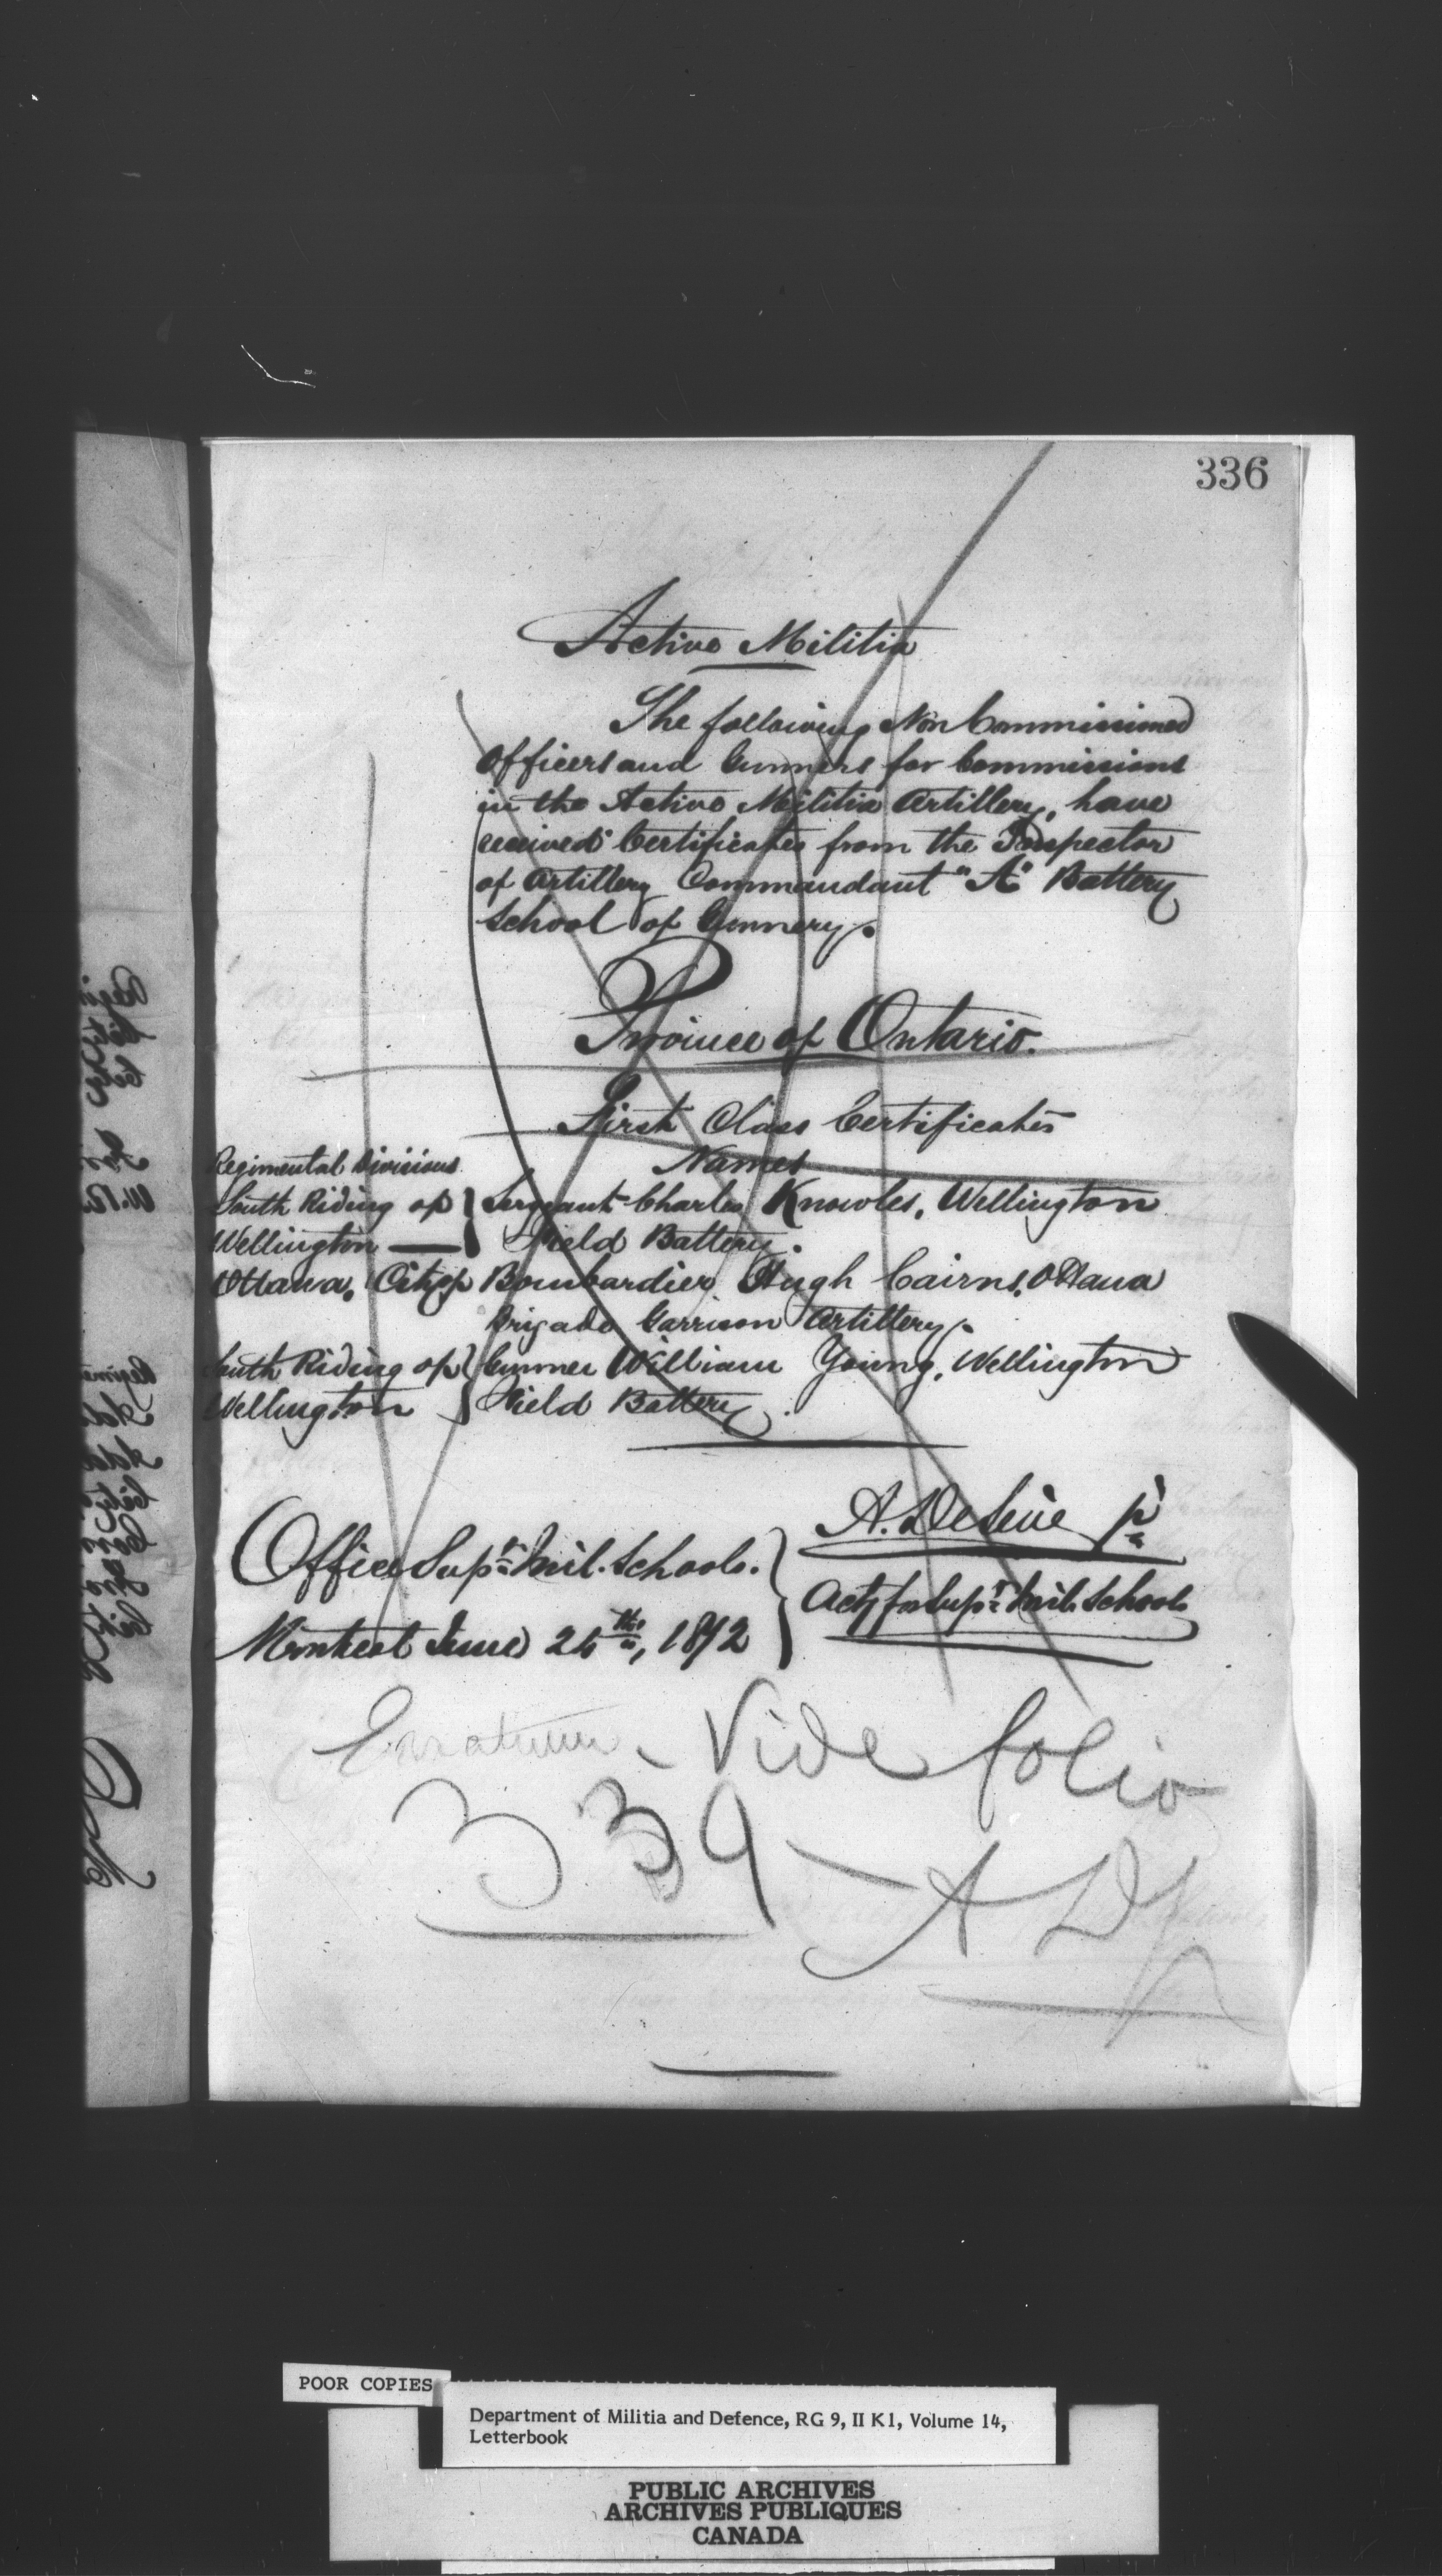 336
Active Militia
The following Non Commissioned
Officers and Gunners for Commissions
in the Active Militia Artillery, have
received Certificates from the Inspector
of Artillery Commandant "A" Battery
School of Gunnery.
Province of Ontario.
First Class Certificates
Regimental Divisions Names
South Riding of } Sergeant Charles Knowles, Wellington
Wellington — } Field Battery.
Ottawa, City of Bombardier Hugh Cairns, Ottawa
Brigade Garrison Artillery.
South Riding of } Gunner William Young, Wellington
Wellington } Field Battery.
Office Supt. Mil. Schools.
Montreal June 24th, 1872
A. DeLine
Actg for Supt. Mil. Schools
Erratum - Vide folio
339 — A D
POOR COPIES
Department of Militia and Defence, RG 9, II K1, Volume 14,
Letterbook
PUBLIC ARCHIVES
ARCHIVES PUBLIQUES
CANADA